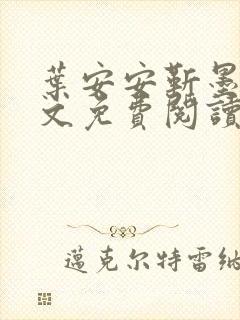 葉安安靳墨
文免費閱讀
邁克尔特雷纳